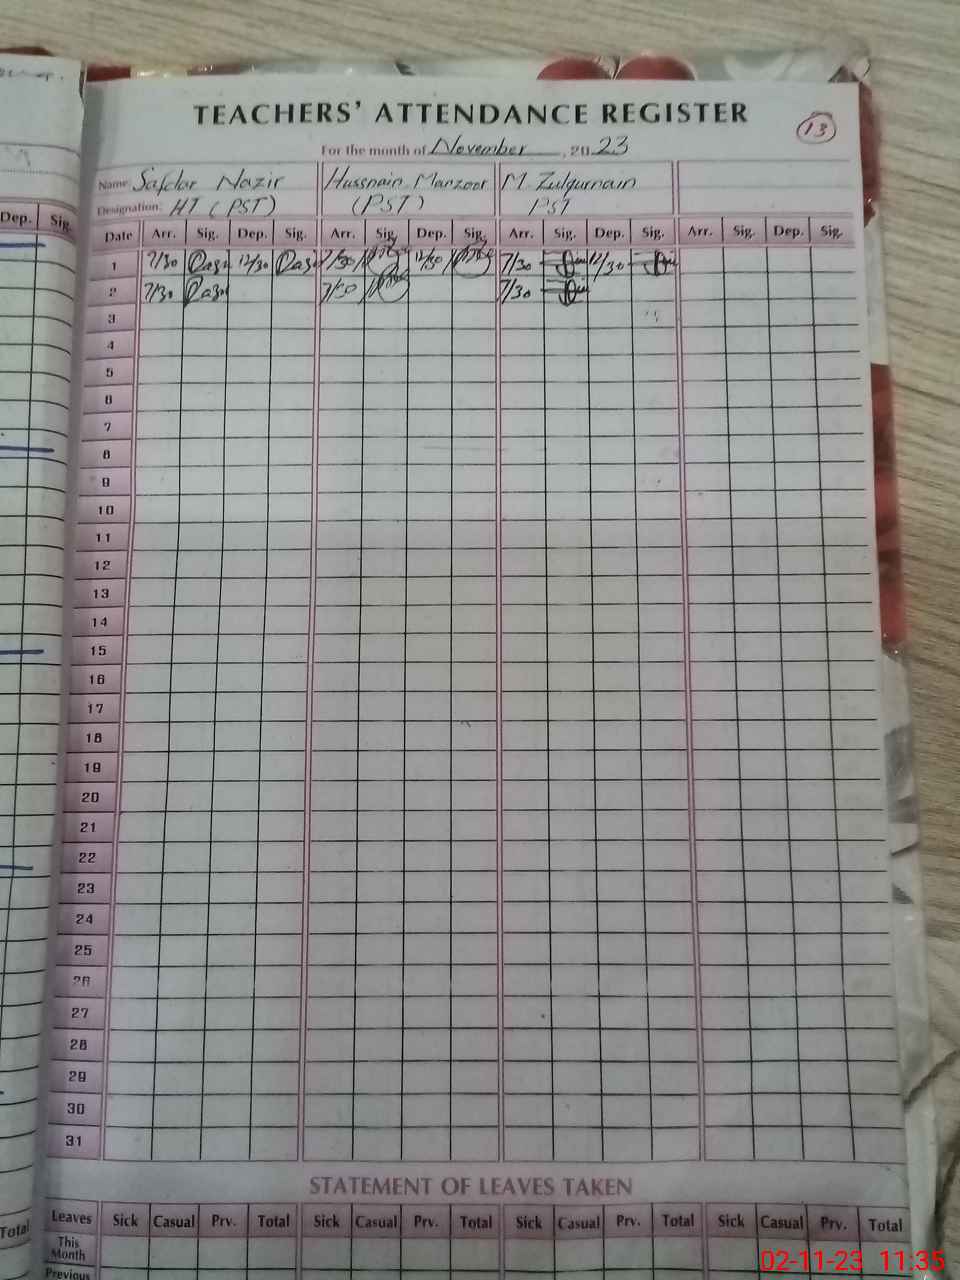 TEACHERS' ATTENDANCE REGISTER
13
For the month of November, 2023
Name: Safdar Nazir Hussnain Manzoor M. Zulqurnain
Designation: HT (PST) (PST) PST
Dep. Sig.
Date Arr. Sig. Dep. Sig. Arr. Sig. Dep. Sig. Arr. Sig. Dep. Sig. Arr. Sig. Dep. Sig.
1 7/30 12/30 7/30 12/30 7/30 12/30
2 7/30 7/30 7/30
3
4
5
6
7
8
9
10
11
12
13
14
15
16
17
18
19
20
21
22
23
24
25
26
27
28
29
30
31
STATEMENT OF LEAVES TAKEN
Total
Leaves Sick Casual Prv. Total Sick Casual Prv. Total Sick Casual Prv. Total Sick Casual Prv. Total
This
Month
Previous
02-11-23 11:35